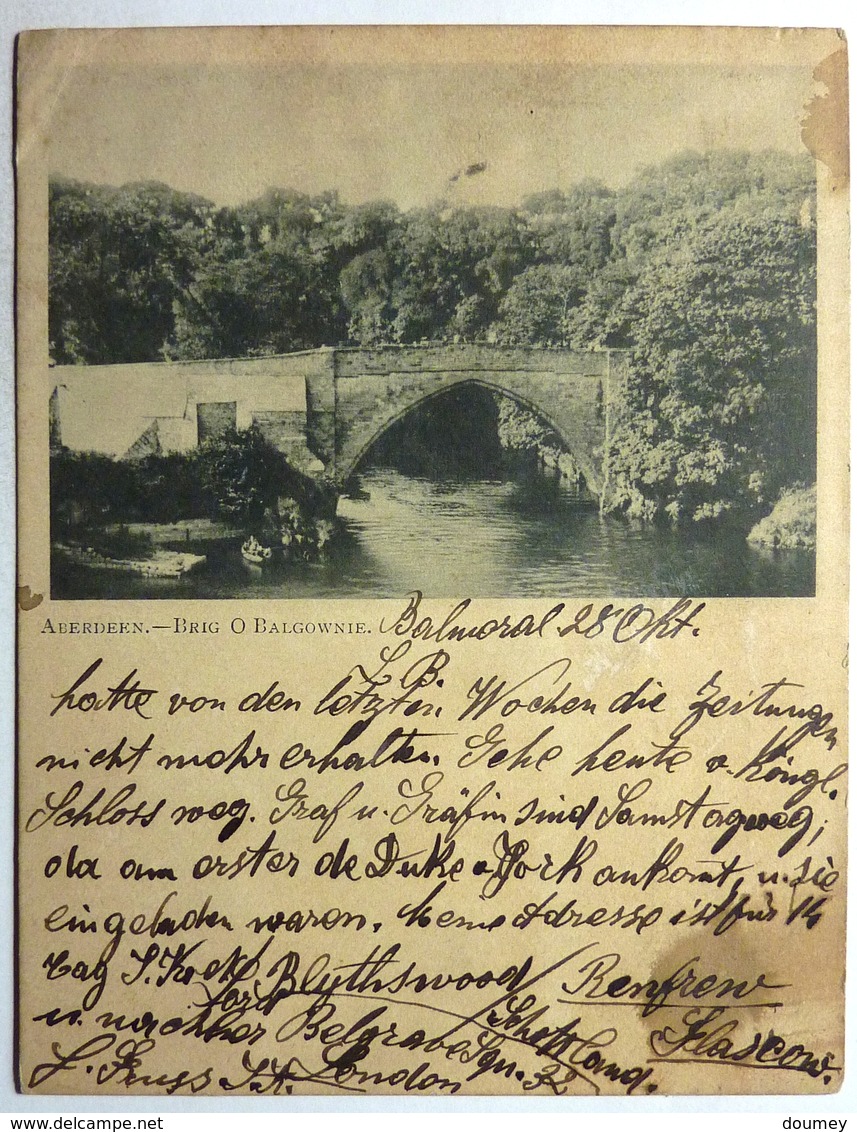 ABERDEEN.—BRIG O BALGOWNIE. Balmoral 28 Okt.
L. B.
hatte von den letzten Wochen die Zeitungen
nicht mehr erhalten. Gehe heute v. Königl.
Schloss weg. Graf u. Gräfin sind Samstag weg,
da am erster de Duke v. York ankomt, u. sie
eingeladen waren. Meine Adresse ist für 14
tag Lord Blythswood Renfrew
u. nachher Belgrave Squ. 32 Schottland. Glascow.
L. Gruss London
doumey